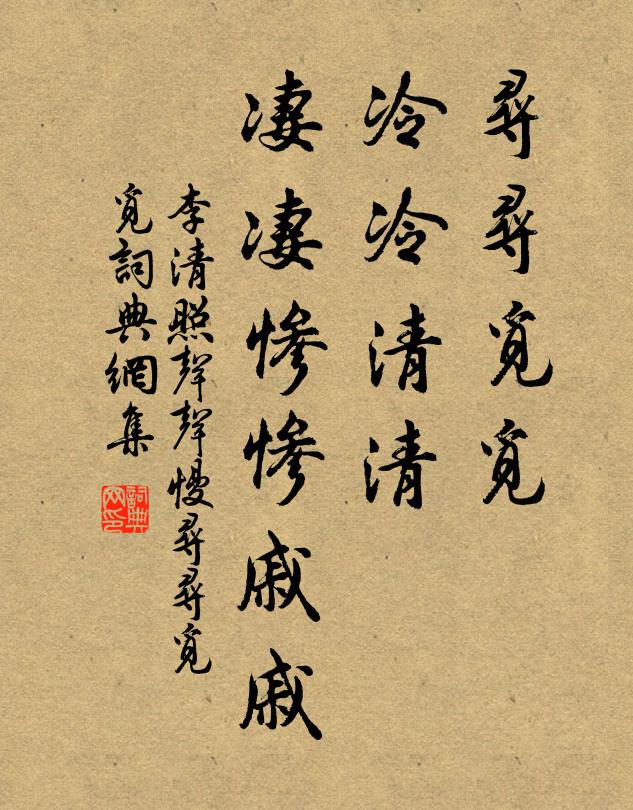 尋尋覓覓
冷冷清清
凄凄慘慘戚戚
李清照聲聲慢尋尋覓
覓詞典網集
詞典
网印